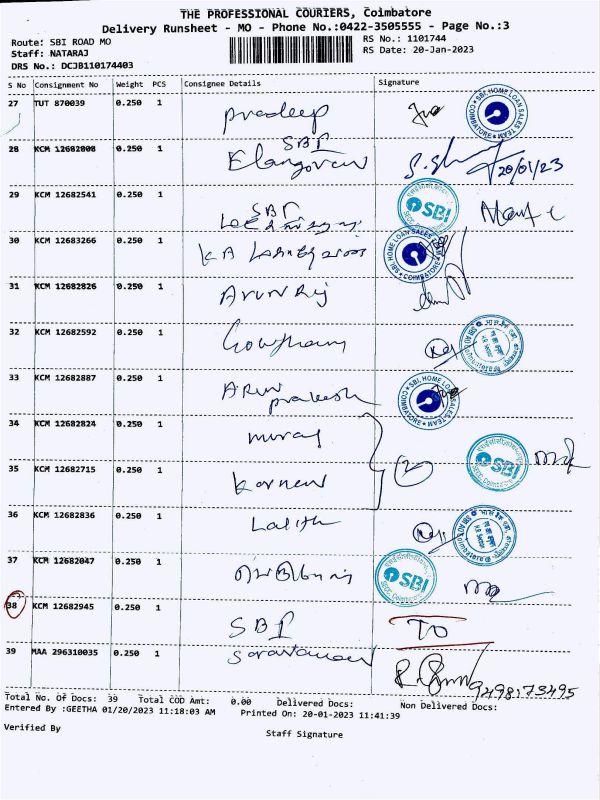 THE PROFESSIONAL COURIERS, Coimbatore
Delivery Runsheet - MO - Phone No.:0422-3505555 - Page No.:3
Route: SBI ROAD MO
RS No.: 1101744
Staff: NATARAJ
RS Date: 20-Jan-2023
DRS No.: DCJB110174403
S No Consignment No Weight PCS Consignee Details Signature
27 TUT 870039 0.250 1 Pradeep
SBI HOME LOAN SALES TEAM COIMBATORE
28 KCM 12682008 0.250 1 SBI
Elangovan
20/01/23
29 KCM 12682541 0.250 1 SBI
SBI
30 KCM 12683266 0.250 1 KA
SBI HOME LOAN SALES TEAM COIMBATORE
31 KCM 12682826 0.250 1 Arun Raj
32 KCM 12682592 0.250 1 Gowtham
33 KCM 12682887 0.250 1 Arun
prakash
SBI HOME LOAN SALES TEAM COIMBATORE
34 KCM 12682824 0.250 1 murali
2
SBI
35 KCM 12682715 0.250 1
36 KCM 12682836 0.250 1 Lalith
37 KCM 12682047 0.250 1
SBI
38 KCM 12682945 0.250 1 SBI TO
39 MAA 296310035 0.250 1 Saravanan
9498173495
Total No. Of Docs: 39 Total COD Amt: 0.00 Delivered Docs: Non Delivered Docs:
Entered By :GEETHA 01/20/2023 11:18:03 AM Printed On: 20-01-2023 11:41:39
Verified By
Staff Signature